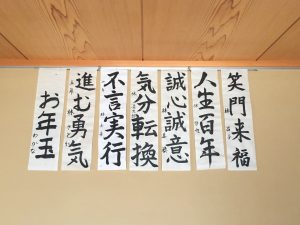 笑門来福
人生百年
誠心誠意
気分転換
不言実行
進む勇気
お年玉
わかな